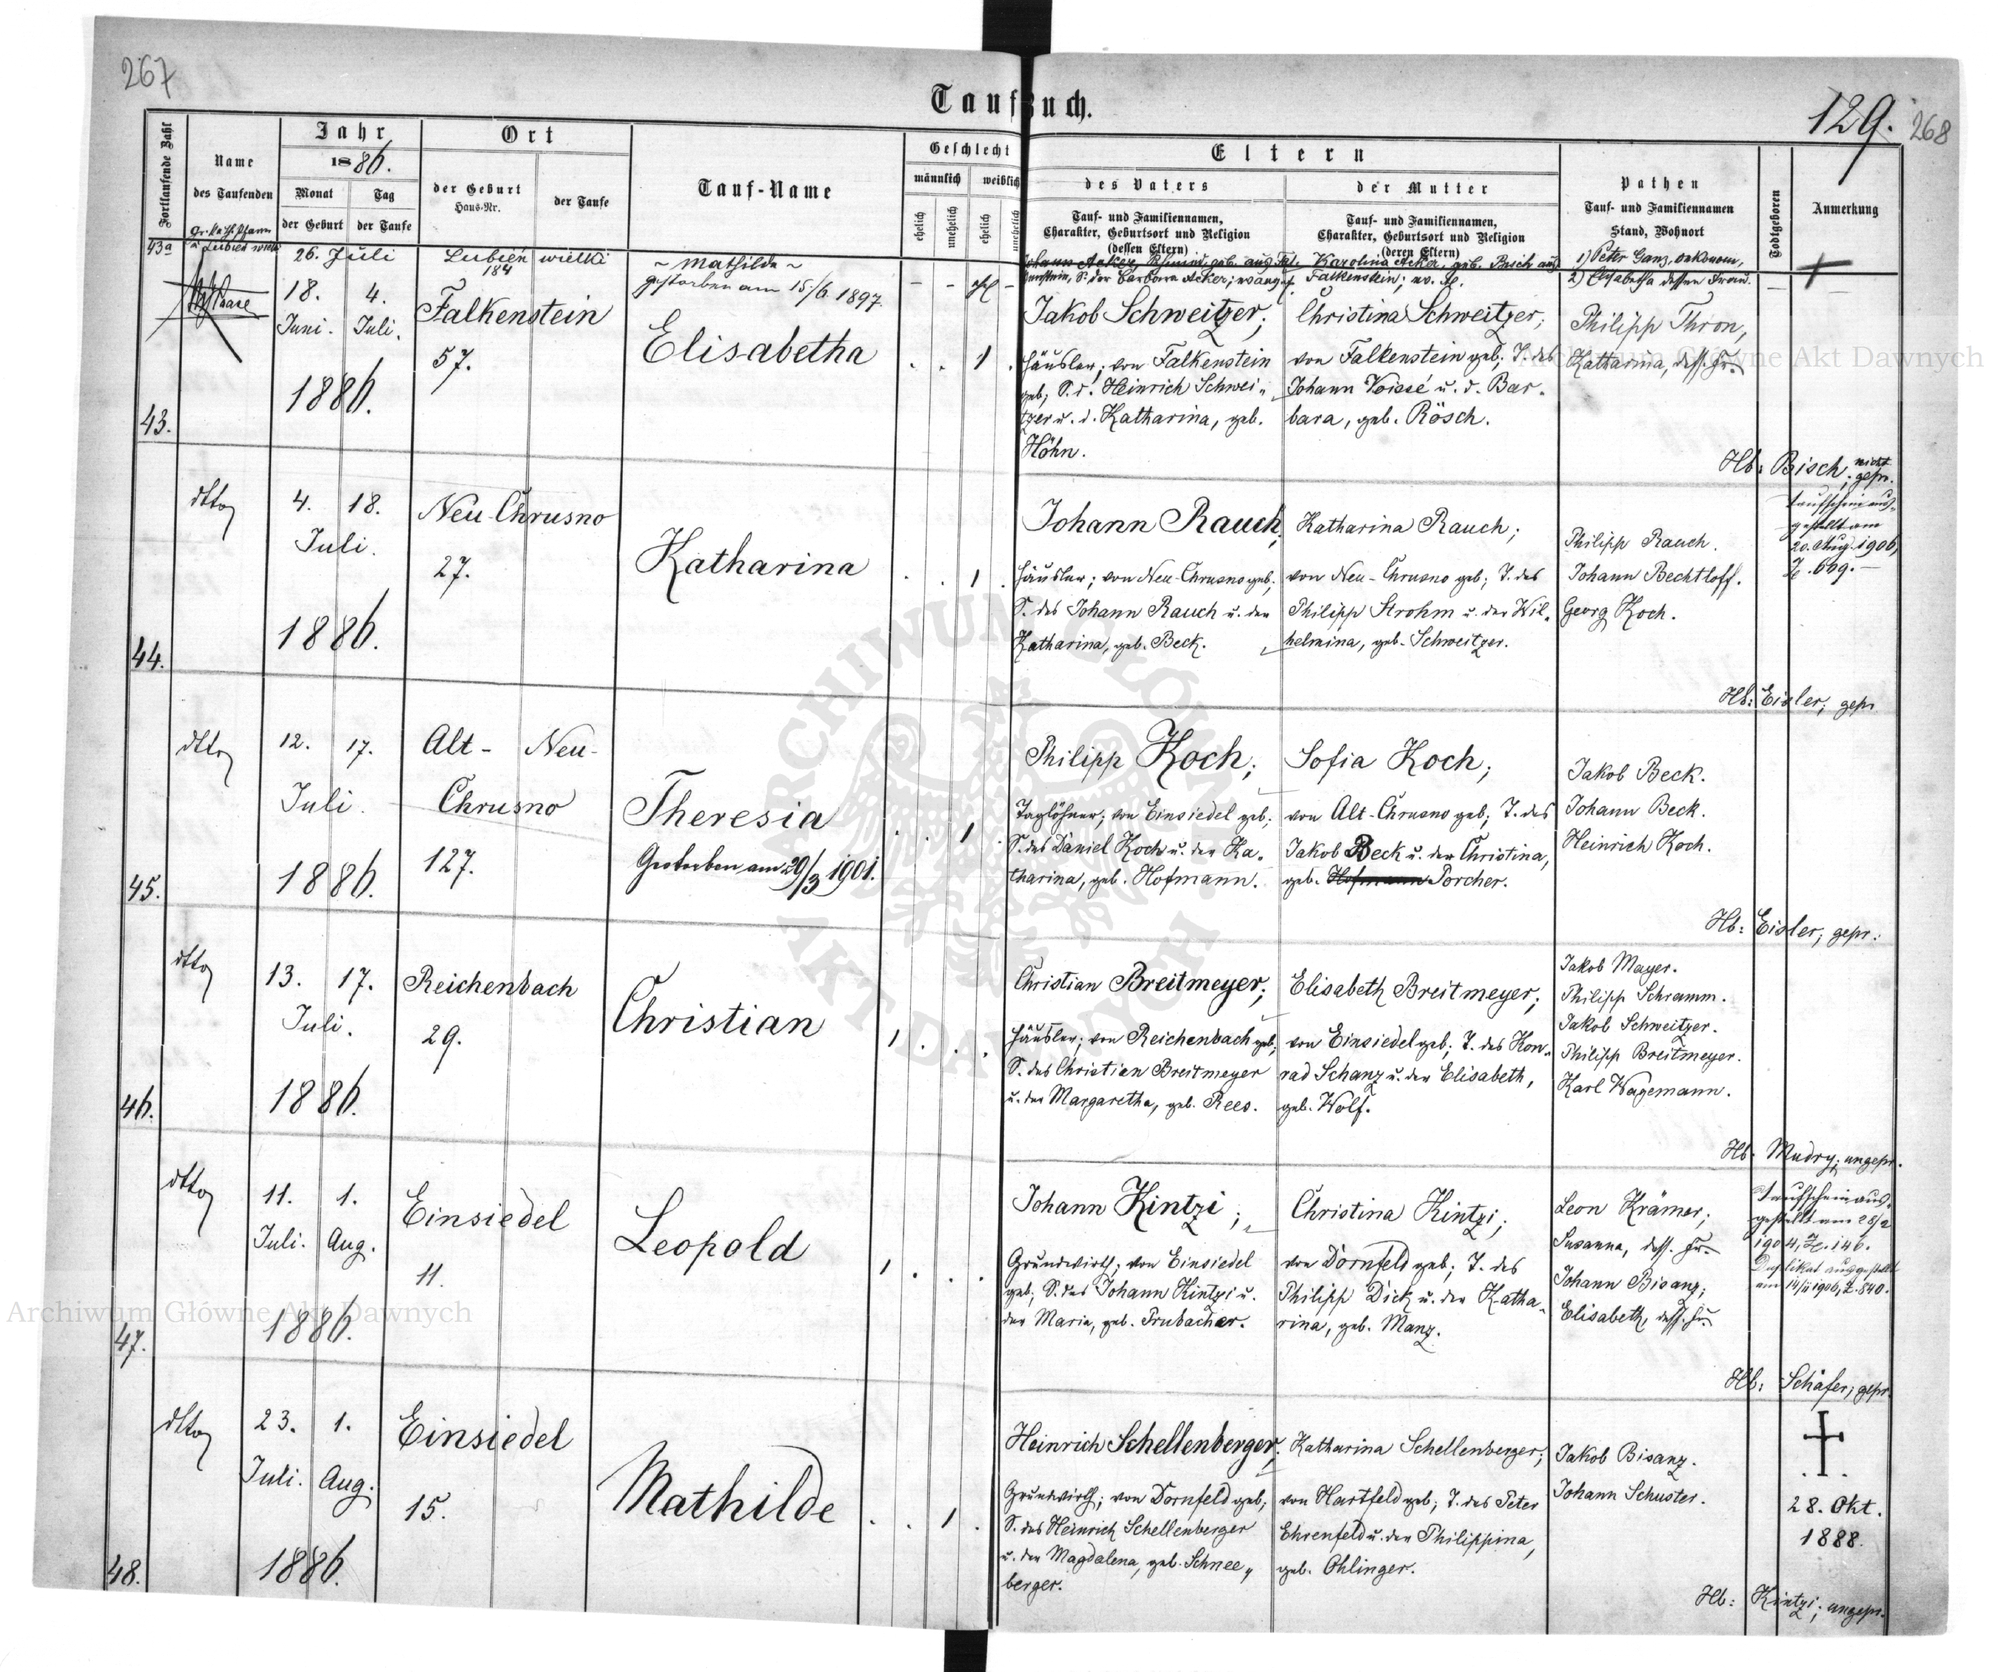 267
Taufbuch.
129. 268
Fortlaufende Zahl
Name
des Taufenden
Jahr
1886.
Monat
der Geburt
Tag
der Taufe
Ort
der Geburt
Haus-Nr.
der Taufe
Tauf-Name
Geschlecht
männlich
weiblich
ehelich
unehelich
ehelich
unehelich
Eltern
des Vaters
Tauf- und Familiennamen,
Charakter, Geburtsort und Religion
(dessen Eltern)
der Mutter
Tauf- und Familiennamen,
Charakter, Geburtsort und Religion
(deren Eltern)
Pathen
Tauf- und Familiennamen
Stand, Wohnort
Todtgeboren
Anmerkung
43a
26. Juli
Lubien wielki
184
~ Mathilde ~
gestorben am 15/6 1897
- - ehl -
Karolina Acker, geb. Bisch aus
Falkenstein; ev.
1) Peter Ganz, oekonom,
2) Elisabetha dessen Frau.
43.
18. 4.
Juni. Juli.
1886.
Falkenstein
57.
Elisabetha
. . 1 .
Jakob Schweitzer;
Häusler; von Falkenstein
geb; S. d. Heinrich Schwei„
tzer u. d. Katharina, geb.
Höhn.
Christina Schweitzer;
von Falkenstein geb; T. des
Johann Voissé u. d. Bar-
bara, geb. Rösch.
Philipp Thron,
Katharina, dess. Fr.
Hb: Bisch; nicht gepr.
44.
dtto
4. 18.
Juli.
1886.
Neu-Chrusno
27.
Katharina
. . 1 .
Johann Rauch;
Häusler; von Neu-Chrusno geb;
S. des Johann Rauch u. der
Katharina, geb. Beck.
Katharina Rauch;
von Neu-Chrusno geb; T. des
Philipp Strohm u. der Wil-
helmina, geb. Schweitzer.
Philipp Rauch.
Johann Bechtloff.
Georg Koch.
Taufschein aus-
gestellt am
20. Aug. 1906,
Z. 669.-
Hb: Eisler; gepr
45.
dtto
12. 17.
Juli.
1886.
Alt- Neu-
Chrusno
127.
Theresia
Gestorben am 29/3 1901.
. . 1
Philipp Koch;
Taglöhner; von Einsiedel geb;
S. des Daniel Koch u. der Ka-
tharina, geb. Hofmann.
Sofia Koch;
von Alt-Chrusno geb; T. des
Jakob Beck u. der Christina,
geb. Hofmann Porcher.
Jakob Beck.
Johann Beck.
Heinrich Koch.
Hb: Eisler; gepr.
46.
dtto
13. 17.
Juli.
1886.
Reichenbach
29.
Christian
1 . . .
Christian Breitmeyer;
Häusler; von Reichenbach geb;
S. des Christian Breitmeyer
u. der Margaretha, geb. Rees.
Elisabeth Breitmeyer;
von Einsiedel geb; T. des Kon-
rad Schanz u. der Elisabeth,
geb. Wolf.
Jakob Mayer.
Philipp Schramm.
Jakob Schweitzer.
Philipp Breitmeyer.
Karl Wagemann.
Hb. Mudry; ungepr.
47.
dtto
11. 1.
Juli. Aug.
1886.
Einsiedel
11.
Leopold
1 . . .
Johann Kintzi;
Grundwirth; von Einsiedel
geb; S. des Johann Kintzi u.
der Maria, geb. Brubacher.
Christina Kintzi;
von Dornfeld geb; T. des
Philipp Dick u. der Katha-
rina, geb. Manz.
Leon Krämer;
Susanna, dess. Fr.
Johann Bisanz;
Elisabeth, dess. Fr.
Taufschein aus-
gestellt am 28/2
1904, Z. 146.
Duplikat ausgestellt
am 14/11 1906, Z. 840.
Hb: Schäfer; gepr.
48.
dtto
23. 1.
Juli. Aug.
1886.
Einsiedel
15.
Mathilde
. . 1 .
Heinrich Schellenberger;
Grundwirth; von Dornfeld geb;
S. des Heinrich Schellenberger
u. der Magdalena, geb. Schnee„
berger.
Katharina Schellenberger;
von Hartfeld geb; T. des Peter
Ehrenfeld u. der Philippina,
geb. Ohlinger.
Jakob Bisanz.
Johann Schuster.
28. Okt.
1888.
Hb: Kintzi; ungepr.
Archiwum Główne Akt Dawnych
Archiwum Główne Akt Dawnych
ARCHIWUM GŁÓWNE AKT DAWNYCH